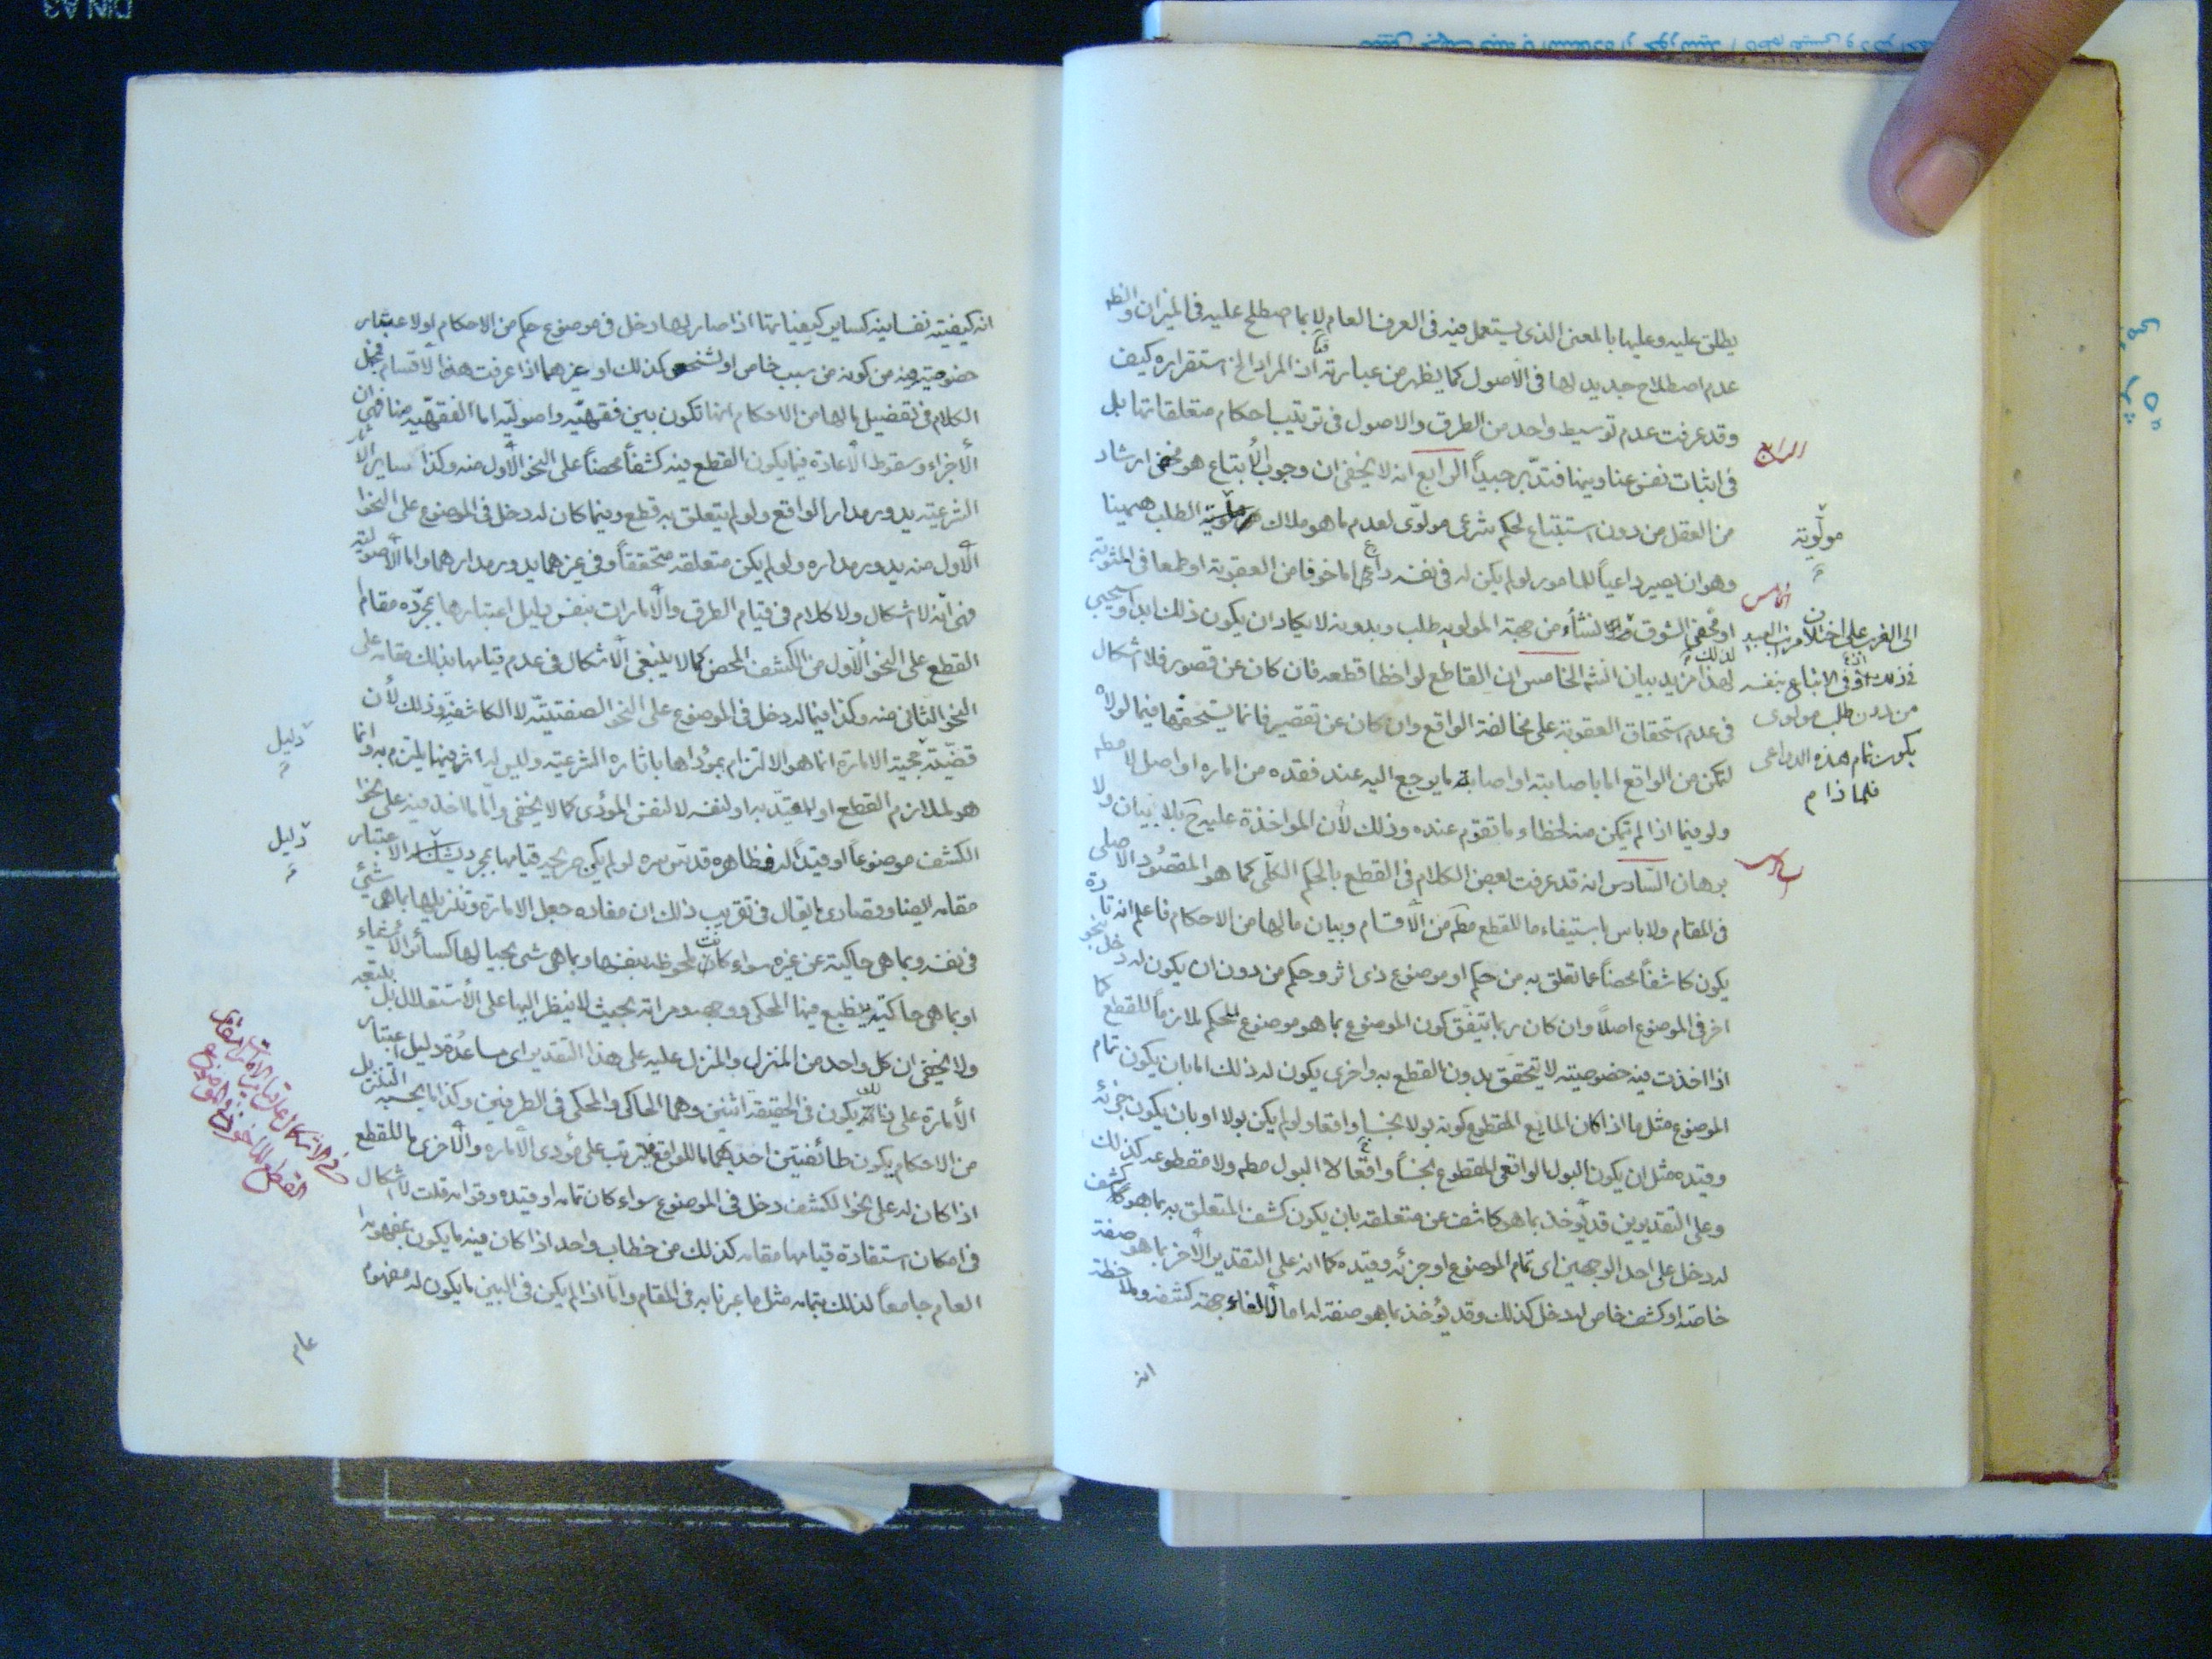 يطلق عليه وعليها بالمعنى الذى يستعمل فيه فى العرف العام لا بما اصطلح عليه فى الميزان والظ
عدم اصطلاح جديد لها فى الاصول كما يظهر من عبارته اذ المراد الخ استقراره كيف
وقد عرفت عدم توسيط واحد من الطرق والاصول فى ترتيب احكام متعلقاتها بل
فى اثبات نفس عناوينها فتدبّر جيداً الرابع انه لا يخفى ان وجوب الاتباع هو محض ارشاد
من العقل من دون استتباع لحكم شرعى مولوّى لعدم ما هو ملاك الطلب هيهنا
وهو ان يصير داعياً للمامور لو لم يكن له فى نفسه داع اما خوفا من العقوبة او طمعا فى المثوبة
او محض الشوق لنشأء من جهة المولوية طلب وبدونه لا يكاد ان يكون ذلك ابداً وسيجيى
لهذا مزيد بيان انشه الخامس ان القاطع لو اخطا قطعه فان كان عن قصور فلا اشكال
فى عدم استحقاق العقوبة على مخالفة الواقع وان كان عن تقصير فانما يستحقها فيما لولاه
لتمكن من الواقع اما باصابته او اصابة ما يرجع اليه عند فقده من اماره او اصل لا مطم
ولو فيما اذا لم يتمكن منه لخطا وما تقوم عنده وذلك لأن المواخذة عليه ح بلا بيان ولا
برهان السّادس انه قد عرفت بعض الكلام فى القطع بالحكم الكلّى كما هو المقصُود الاصلى
فى المقام ولا باس باستيفاء ما للقطع مطم من الاقسام وبيان ما لها من الاحكام فاعلم انه تارة
يكون كاشفاً محضاً عما تعلق به من حكم او موضوع ذى اثر وحكم من دون ان يكون له دخل بنحو
اخر فى الموضوع اصلاً وان كان ربما يتفق كون الموضوع بما هو موضوع للحكم ملازماً للقطع كما
اذا اخذت فيه خصوصيته لا يتحقق بدون القطع به واخرى يكون له ذلك اما بان يكون تمام
الموضوع مثل ما اذا كان المايع المقطوع كونه بولا نجسا واقعا ولو لم يكن بولا او بان يكون جزئه
وقيده مثل ان يكون البول الواقعى المقطوع نجساً واقعا لا البول مطم ولا مقطوعه كذلك
وعلى التقديرين قد يؤخذ بما هو كاشف عن متعلقه بان يكون كشف المتعلق به بما هو كشف
له دخل على احد الوجهين اى تمام الموضوع او جزئه وقيده كما انه على التقدير الأخر بما هو صفة
خاصة او كشف خاص له دخل كذلك وقد يؤخذ بما هو صفة له اما لالغاء جهة كشفه وملاحظة
انه
الرابع
مولّوية
الخامس
فى ذلك او فى الاتباع بنفسه
من دون طلب مولوى
يكون تمام هذه الدواعى
فلما ذا م
سادس
انه كيفيته نفسانيه كساير كيفياتها اذا صار لها دخل فى موضوع حكم من الاحكام اولا عتبار
خصوصية فيه من كونه من سبب خاص او لشخص كذلك او غيرهما اذا عرفت هذه الاقسام فيحل
الكلام فى تفصيل ما لها من الاحكام انها تكون بين فقهيّه واصوليّه اما الفقهّيه منا فهى ان
الأجزاء وسقوط الأعادة فيما يكون القطع فيه كشفاً محضاً على النحو الأول منه وكذا ساير الآثار
الشرعيته يدور مدار الواقع ولو لم يتعلق به قطع وفيما كان له دخل فى الموضوع على النحو
الأول منه يدور مداره ولو لم يكن متعلقه متحققاً وفى غيرهما يدور مدارهما واما الأصولية
فهى انّه لا اشكال ولا كلام فى قيام الطرق والأمارات بنفس دليل اعتبارها بمجرّده مقام
القطع على النحو الأوّل من الكشف المحض كما لا ينبغى الأشكال فى عدم قيامها بذلك مقامه على
النحو الثانى منه وكذا فيما له دخل فى الموضوع على النحو الصفتيّه لا الكاشفة وذلك لأن
قضّيته حجيّة الاماره انما هو الالتزام بمؤداها باثاره الشرعيته وليس له اثر فيما يلتزم به وانما
هو لملازم القطع او لمقيّد به او لنفسه لا لنفس المؤدى كما لا يخفى وامّا ما اخذ فيه على نحو
الكشف موضوعاً او قيداً له فظاهره قدّس سره لو لم يكن صريحه قيامها بمجرد الاعتبار
مقامه ايضا وقصارى ما يقال فى تقريب ذلك ان مفاده جعل الاماره وتنزيلها بما هى شئ
فى نفسه وبما هى حاكية عن غيره سواء كانت ملحوظة بنفسها وبما هى شى بحيالها كسائر الأشياء
او بما هى حاكية ينطبع فيها المحكى ووجهه ومراته بحيث لا ينظر اليها على الأستقلال بل بتبعه
ولا يخفى ان كل واحد من المنزل والمنزل عليه على هذا التقدير اى مساعدُة دليل اعتبار
الأمارة على ذلك يكون فى الحقيقة اثنين وهما الحاكى والمحكى فى الطرفين وكذا ما يحسبه التنزيل
من الاحكام يكون طائفتين احديهما ما للواقع فيترتب على مؤدى الأماره والأخرى ما للقطع
اذا كان له على نحو الكشف دخل فى الموضوع سواء كان تمامه او قيده وقوامه قلت لا اشكال
فى امكان استفادة قيامها مقامه كذلك من خطاب واحد اذا كان فيه ما يكون بمفهومه
العام جامعاً لذلك بتمامه مثل ما عبرنا به فى المقام وامّا اذا لم يكن فى البين ما يكون له مفهوم
عام
دليل
دليل